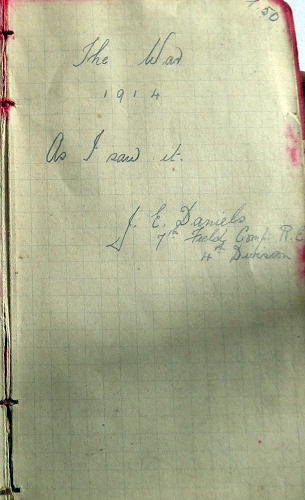 1/50
The War
1914
As I saw it.
J. E. Daniels
7th Field Comp. R.E
4th Division